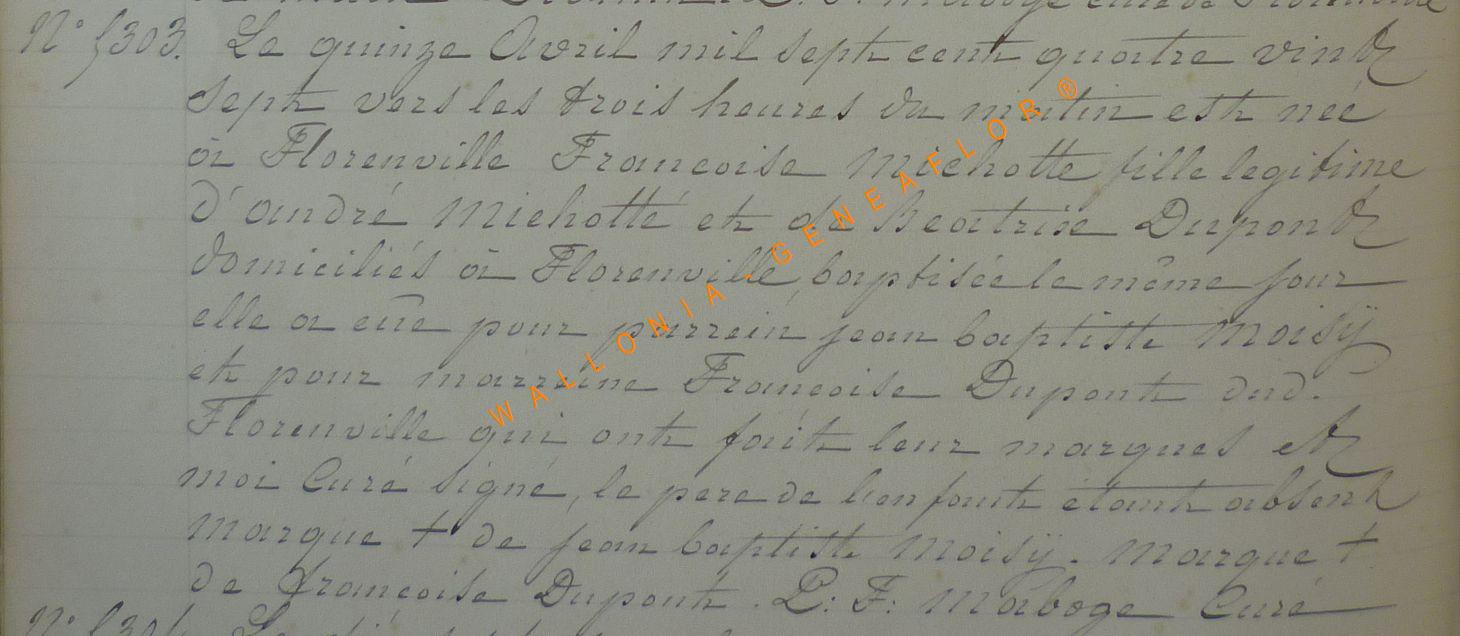 Maboge curé de
N° 5303. Le quinze Avril mil sept cent quatre vint
sept vers les trois heures du matin est née
à Florenville Francoise Michotte fille legitime
d'andré Michotté et de Beatrise Dupont
domiciliés à Florenville, baptisée le même jour
elle a eüe pour parrein jean baptiste Moisÿ
et pour marreine Francoise Dupont dud.
Florenville qui ont fait leur marques et
moi Curé signé, le pere de l'enfant étant absent
marque + de jean baptiste Moisÿ. marque +
de francoise Dupont. P: F: Maboge Curé
N° Le
WALLONIA - GENEAFLOR ®